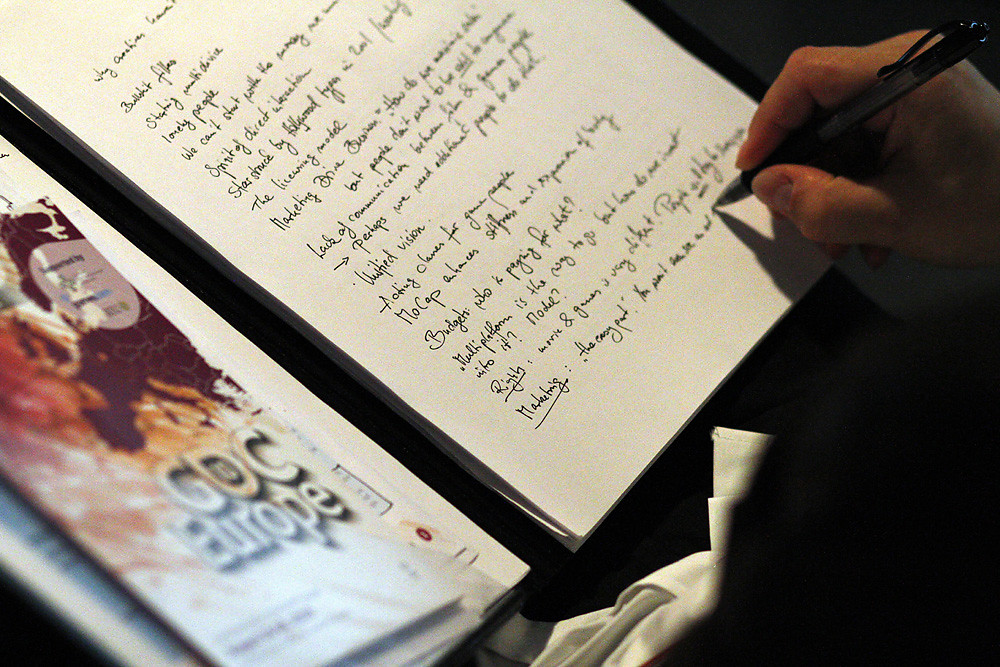 why
Bullshit files
Starting multidivice
lonely people
We can't start with the money we
Spirit of direct interaction
Starstruck by Hollywood types in 2001 /
The licensing model
Marketing Drive Business: How do you
but people don't want to be sold to anymore
Lack of communication between film & games people
→ Perhaps we need additional people to do that.
· Unified vision.
Acting classes for game people
MoCap enhances stiffness and expression of body
Budgets: who is paying for what?
„Multiplatform is the way to go" but how do we invest
into it? Model?
Rights: movie & games is very different. People
Marketing: „the easy part". You
Supported by
GDC
Europe